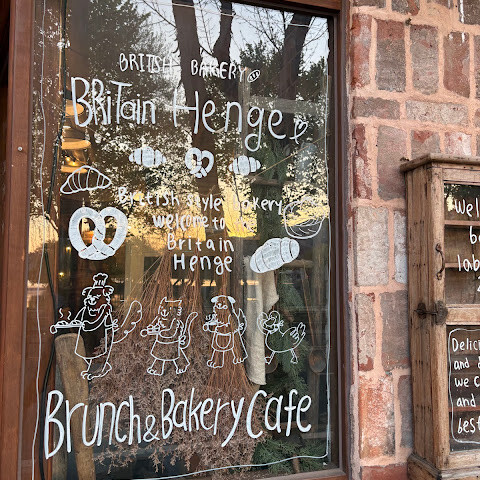 BRITISH BAKERY
BRiTain Henge
British style bakery
welcome to
Britain
Henge
Brunch & Bakery Cafe
Wel
b
lab
Delici
and
we c
and
best